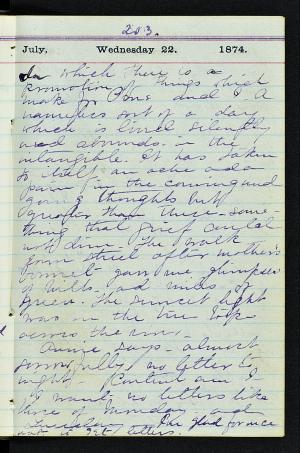 203.
July, Wednesday 22. 1874.
In which there is a
promotion of things which
make for one and I. A
nameless sort of a day
which is lived silently
and abounds in the
intangible. It has taken
to itself an ache and a
pain for the coming and
going thoughts but
greater than these some
thing that grief
not dim. The walk
from street after mother's
bonnet gave me glimpses
of hills and miles of
green. The sunset light
was on the tree tops
across the river.
Annie says almost
sorrowfully no letter to
night. am I
I want no letters like
those of Monday and
Saturday. Oh glad for once
not to get letters.